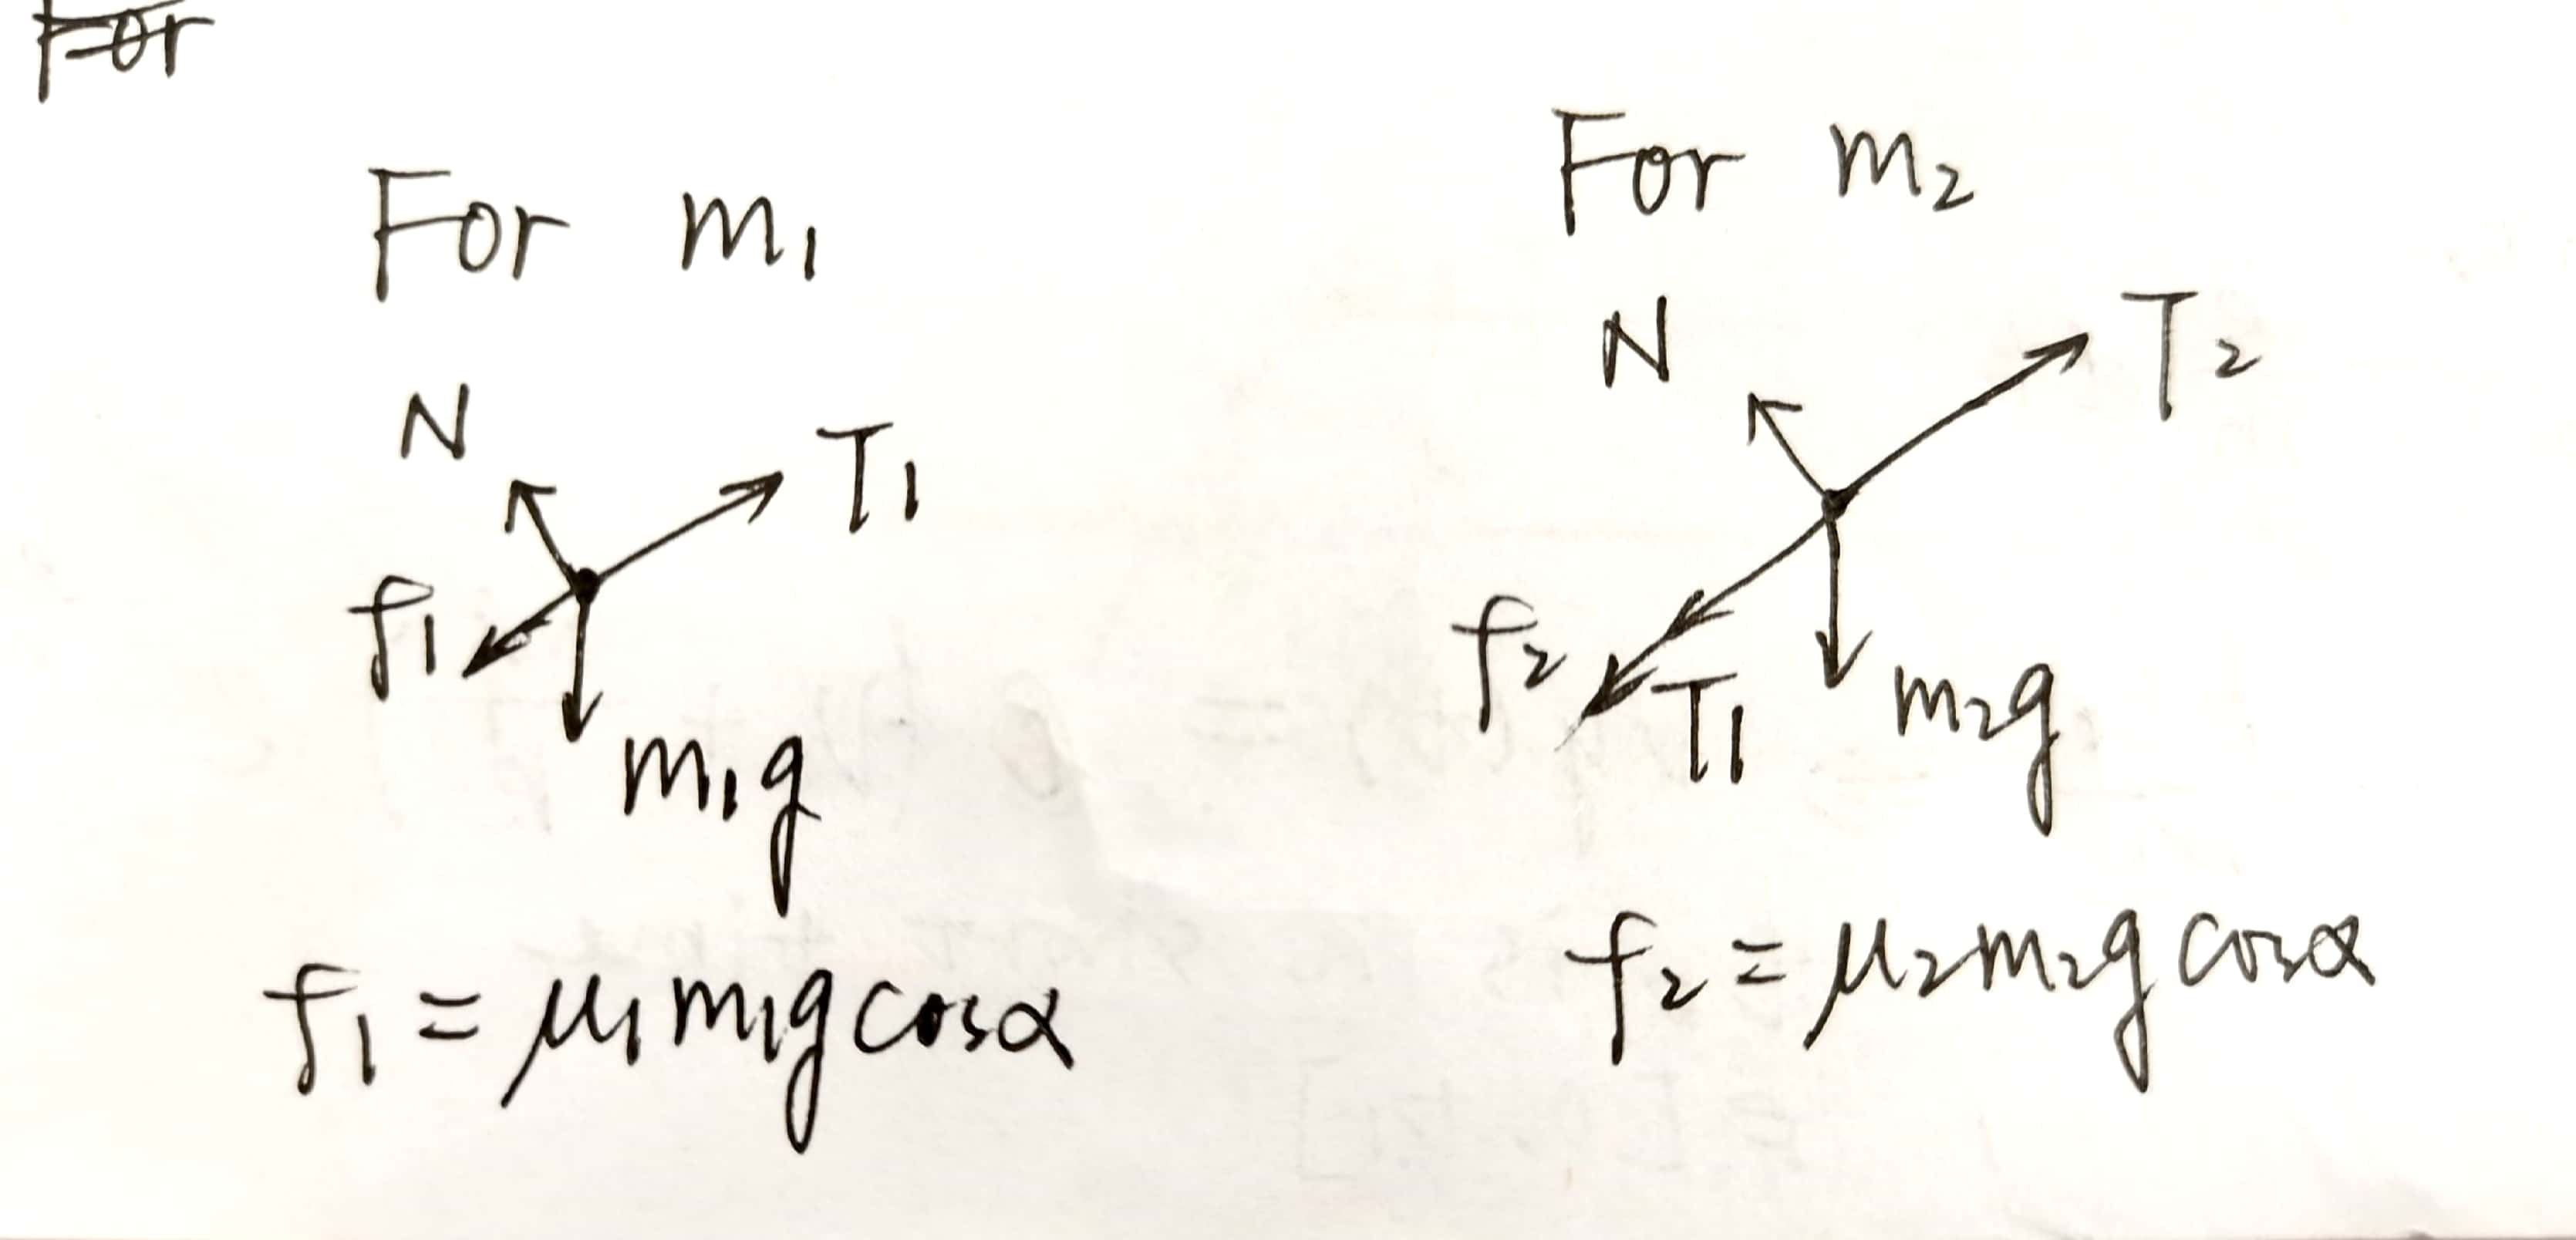 For
For m₁
N
T₁
f₁
m₁g
f₁ = μ₁m₁g cosα
For m₂
N
T₂
f₂
T₁
m₂g
f₂ = μ₂m₂g cosα